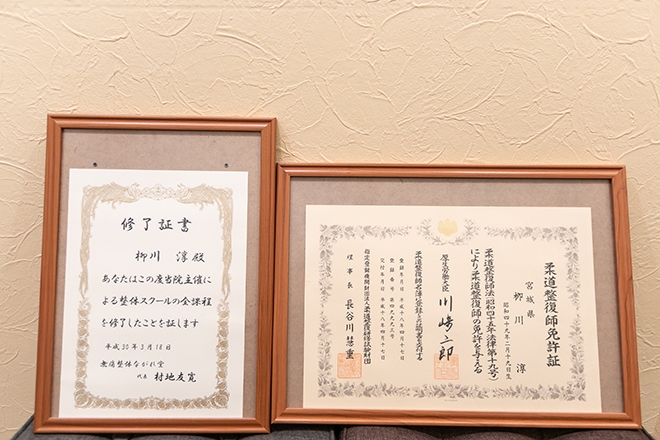 修了証書
柳川 淳 殿
あなたはこの度当院主催に
よる整体スクールの全課程
を修了したことを証します
平成30年3月18日
無痛整体ながれ堂
代表 村地友寛
柔道整復師免許証
宮城県
柳川 淳
昭和四十九年二月十九日生
柔道整復師法(昭和四十五年法律第十九号)
により柔道整復師の免許を与える
厚生労働大臣 川崎二郎
柔道整復師名簿に登録した証明書を交付する
登録年月日 平成十八年四月十七日
交付年月日 平成十八年四月十七日
指定登録機関財団法人柔道整復研修試験財団
理事長 長谷川慧重